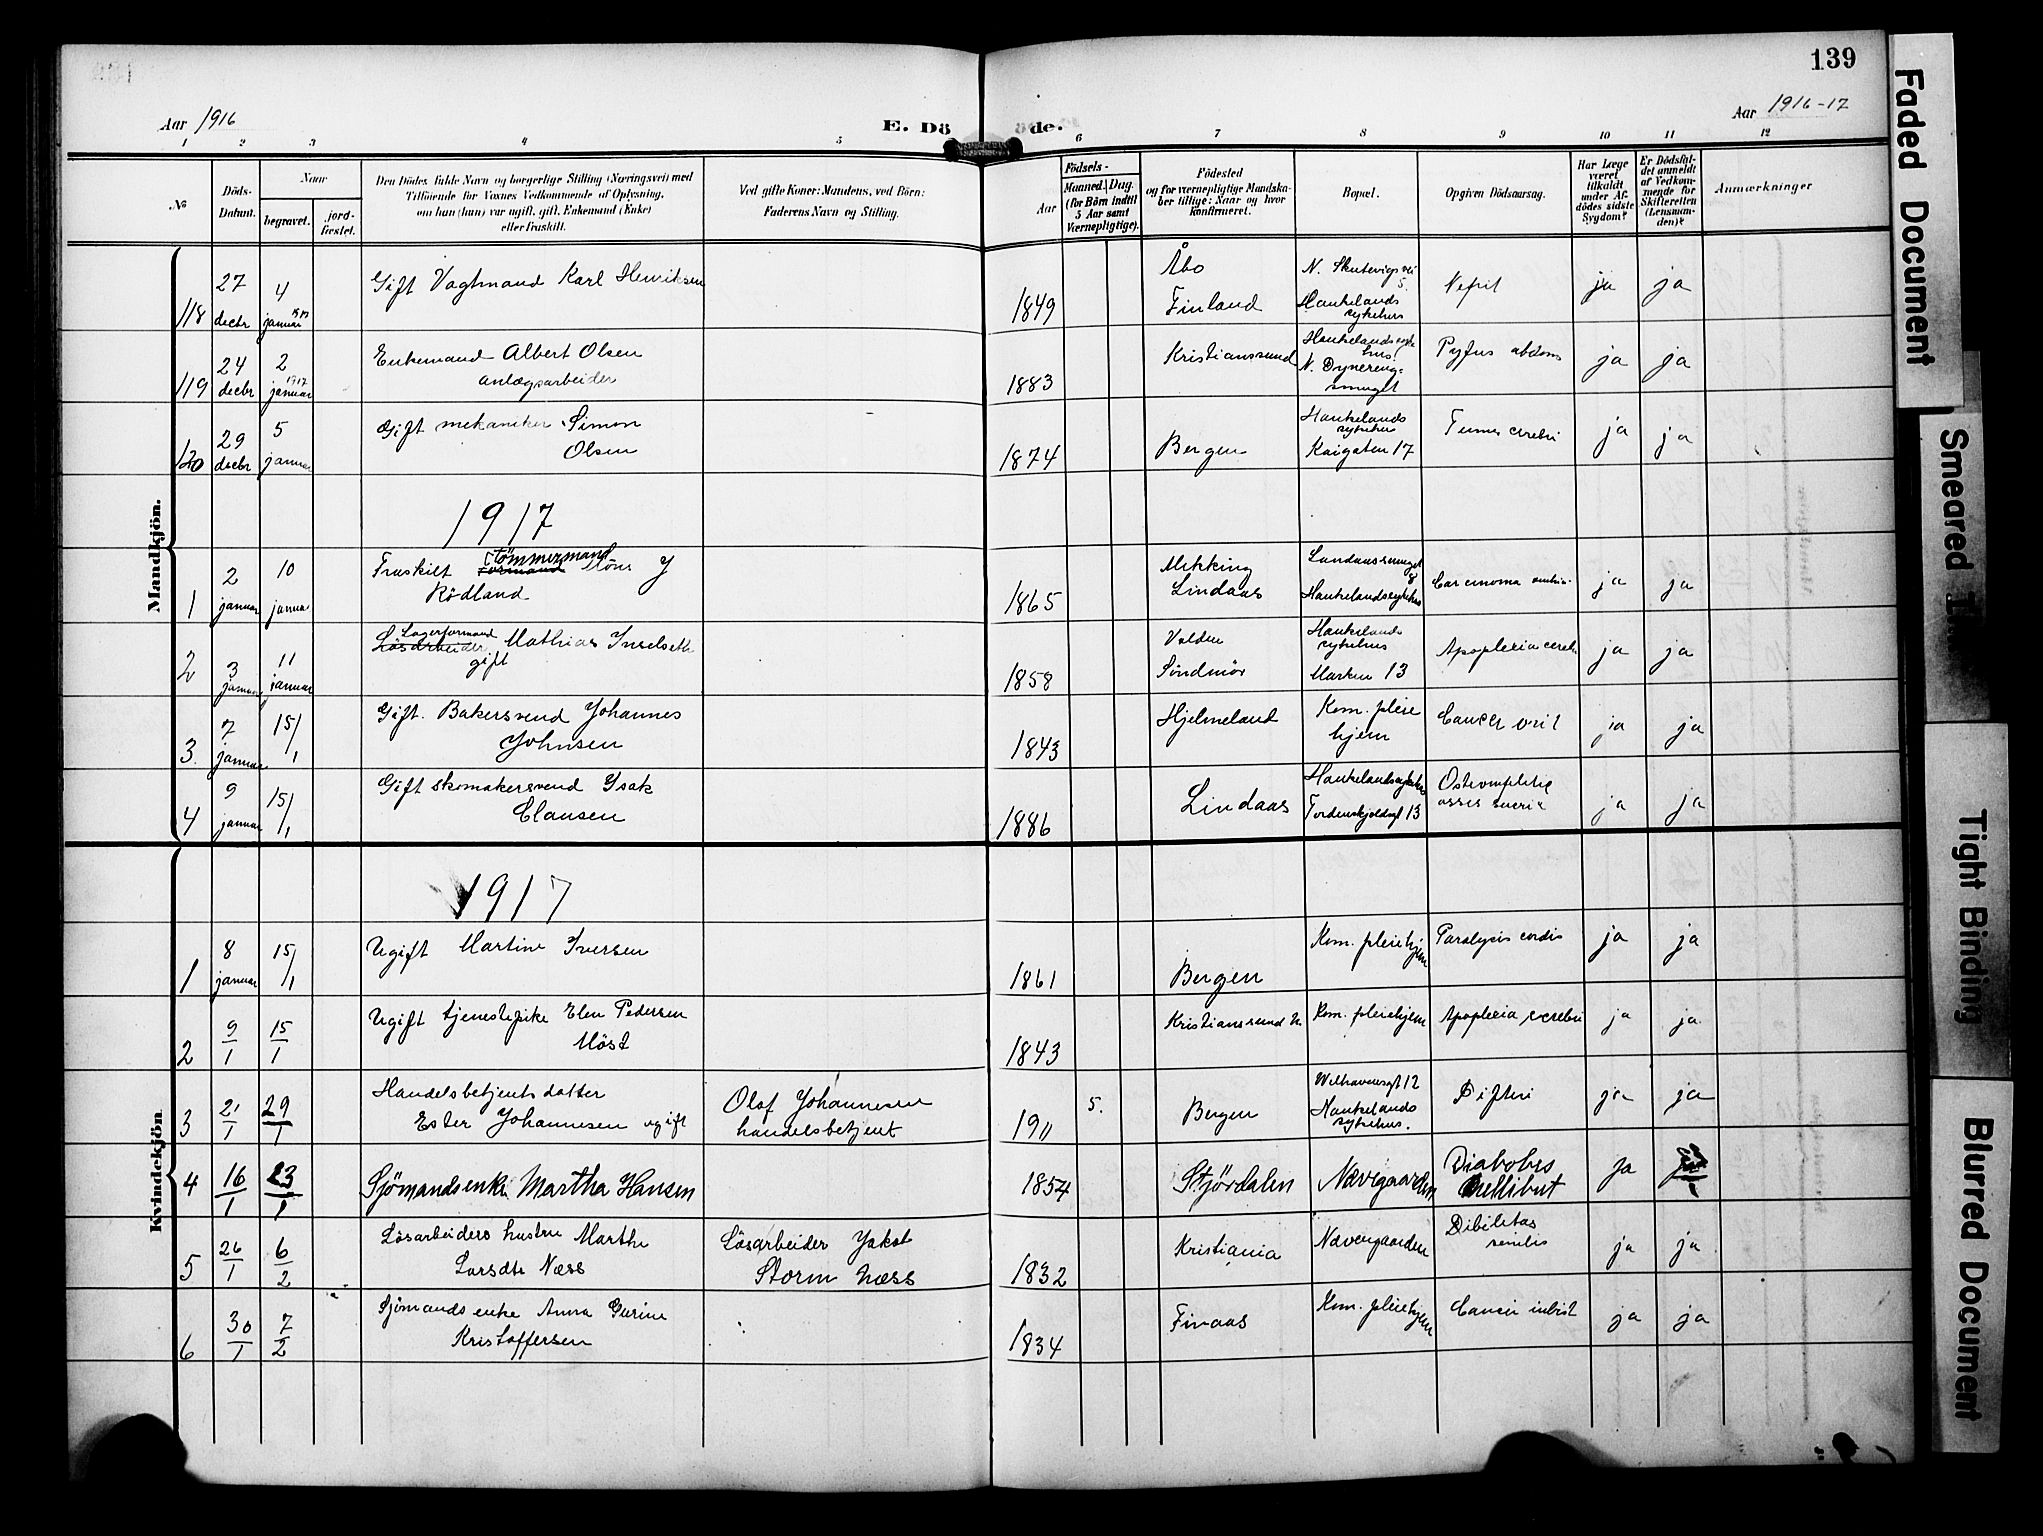 139
Aar 1916
E. Döde.
Aar 1916-17
1 2 3 4 5 6 7 8 9 10 11 12
No
Döds-Datum.
Naar
begravet.
jord-fæstet.
Den Dödes fulde Navn og borgerlige Stilling (Næringsvei) med
Tilföiende for Voxnes Vedkommende af Oplysning,
om han (hun) var ugift, gift, Enkemand (Enke)
eller fraskilt.
Ved gifte Koner: Mandens, ved Börn:
Faderens Navn og Stilling.
Födsels-
Aar
Maaned. Dag.
(for Börn indtil
5 Aar samt
Værnepligtige).
Födested
og for værnepligtige Mandska-
ber tillige: Naar og hvor
konfirmeret.
Bopæl.
Opgiven Dödsaarsag.
Har Læge
været
tilkaldt
under Af-
dödes sidste
Sygdom?
Er Dödsfal-
det anmeldt
af Vedkom-
mende for
Skifteretten
(Lensman-
den)?
Anmærkninger
Mandkjön.
118 27 decbr 4 januar 1917 Gift Vagtmand Karl Henriksen 1849 Åbo Finland N. Skutevigsvei 5. Haukelands sykehus Nefrit ja ja
119 24 decbr 2 januar 1917 Enkemand Albert Olsen
anlægsarbeider 1883 Kristianssund N. ja ja
120 29 decbr 5 januar Gift mekaniker Simon
Olsen 1874 Bergen Haukelands sykehus Kaigaten 17 cerebri ja ja
1917
1 2 januar 10 januar Fraskilt tömmermand formand Mons J
Rödland 1865 Lindaas Haukelandssykehus Carcinoma ja ja
2 3 januar 11 januar Lagerformand Lösarbeider Mathias
gift 1858 Volden Söndmör Haukelands sykehus Marken 13 Apoplexia cerebri ja ja
3. 7 januar 15/1 Gift. Bakersvend Johannes
Johnsen 1843 Hjelmeland Kom. pleie hjem Cancer ja ja
4 9 januar 15/1 Gift skomakersvend Isak
Clausen 1886 Lindaas Haukelandsykehus Tordenskjoldsgt 13 ja ja
Kvindekjön
1917
1 8 januar 15/1 Ugift Martine Iversen 1861 Bergen Kom. pleiehjem Paralysis cordis ja ja
2 9/1 15/1 Ugift tjenestepike Elen Pedersen
Möst 1843 Kristianssund N. Kom. pleiehjem Apoplexia cerebri ja ja
3 21/1 29/1 Handelsbetjents datter
Ester Johannesen ugift Olaf Johannesen
handelsbetjent 1911 5. Bergen Welhavensgt 12 Haukelands sykehus. Difteri ja ja
4 16/1 23/1 Sjömandsenke Martha Hansen 1854 Stjördalen Diabetes ja
5 26/1 6/2 Lösarbeiders hustru Marthe
Larsdtr Næss Lösarbeider Jakob
Storm Næss 1832 Kristiania Nævengaarden Debilitas senilis ja ja
6 30/1 7/2 Sjömands enke Anna Gurine
Kristoffersen 1834 Finaas Kom. pleiehjem Cancer ja ja
Faded Document
Smeared
Tight Binding
Blurred Document